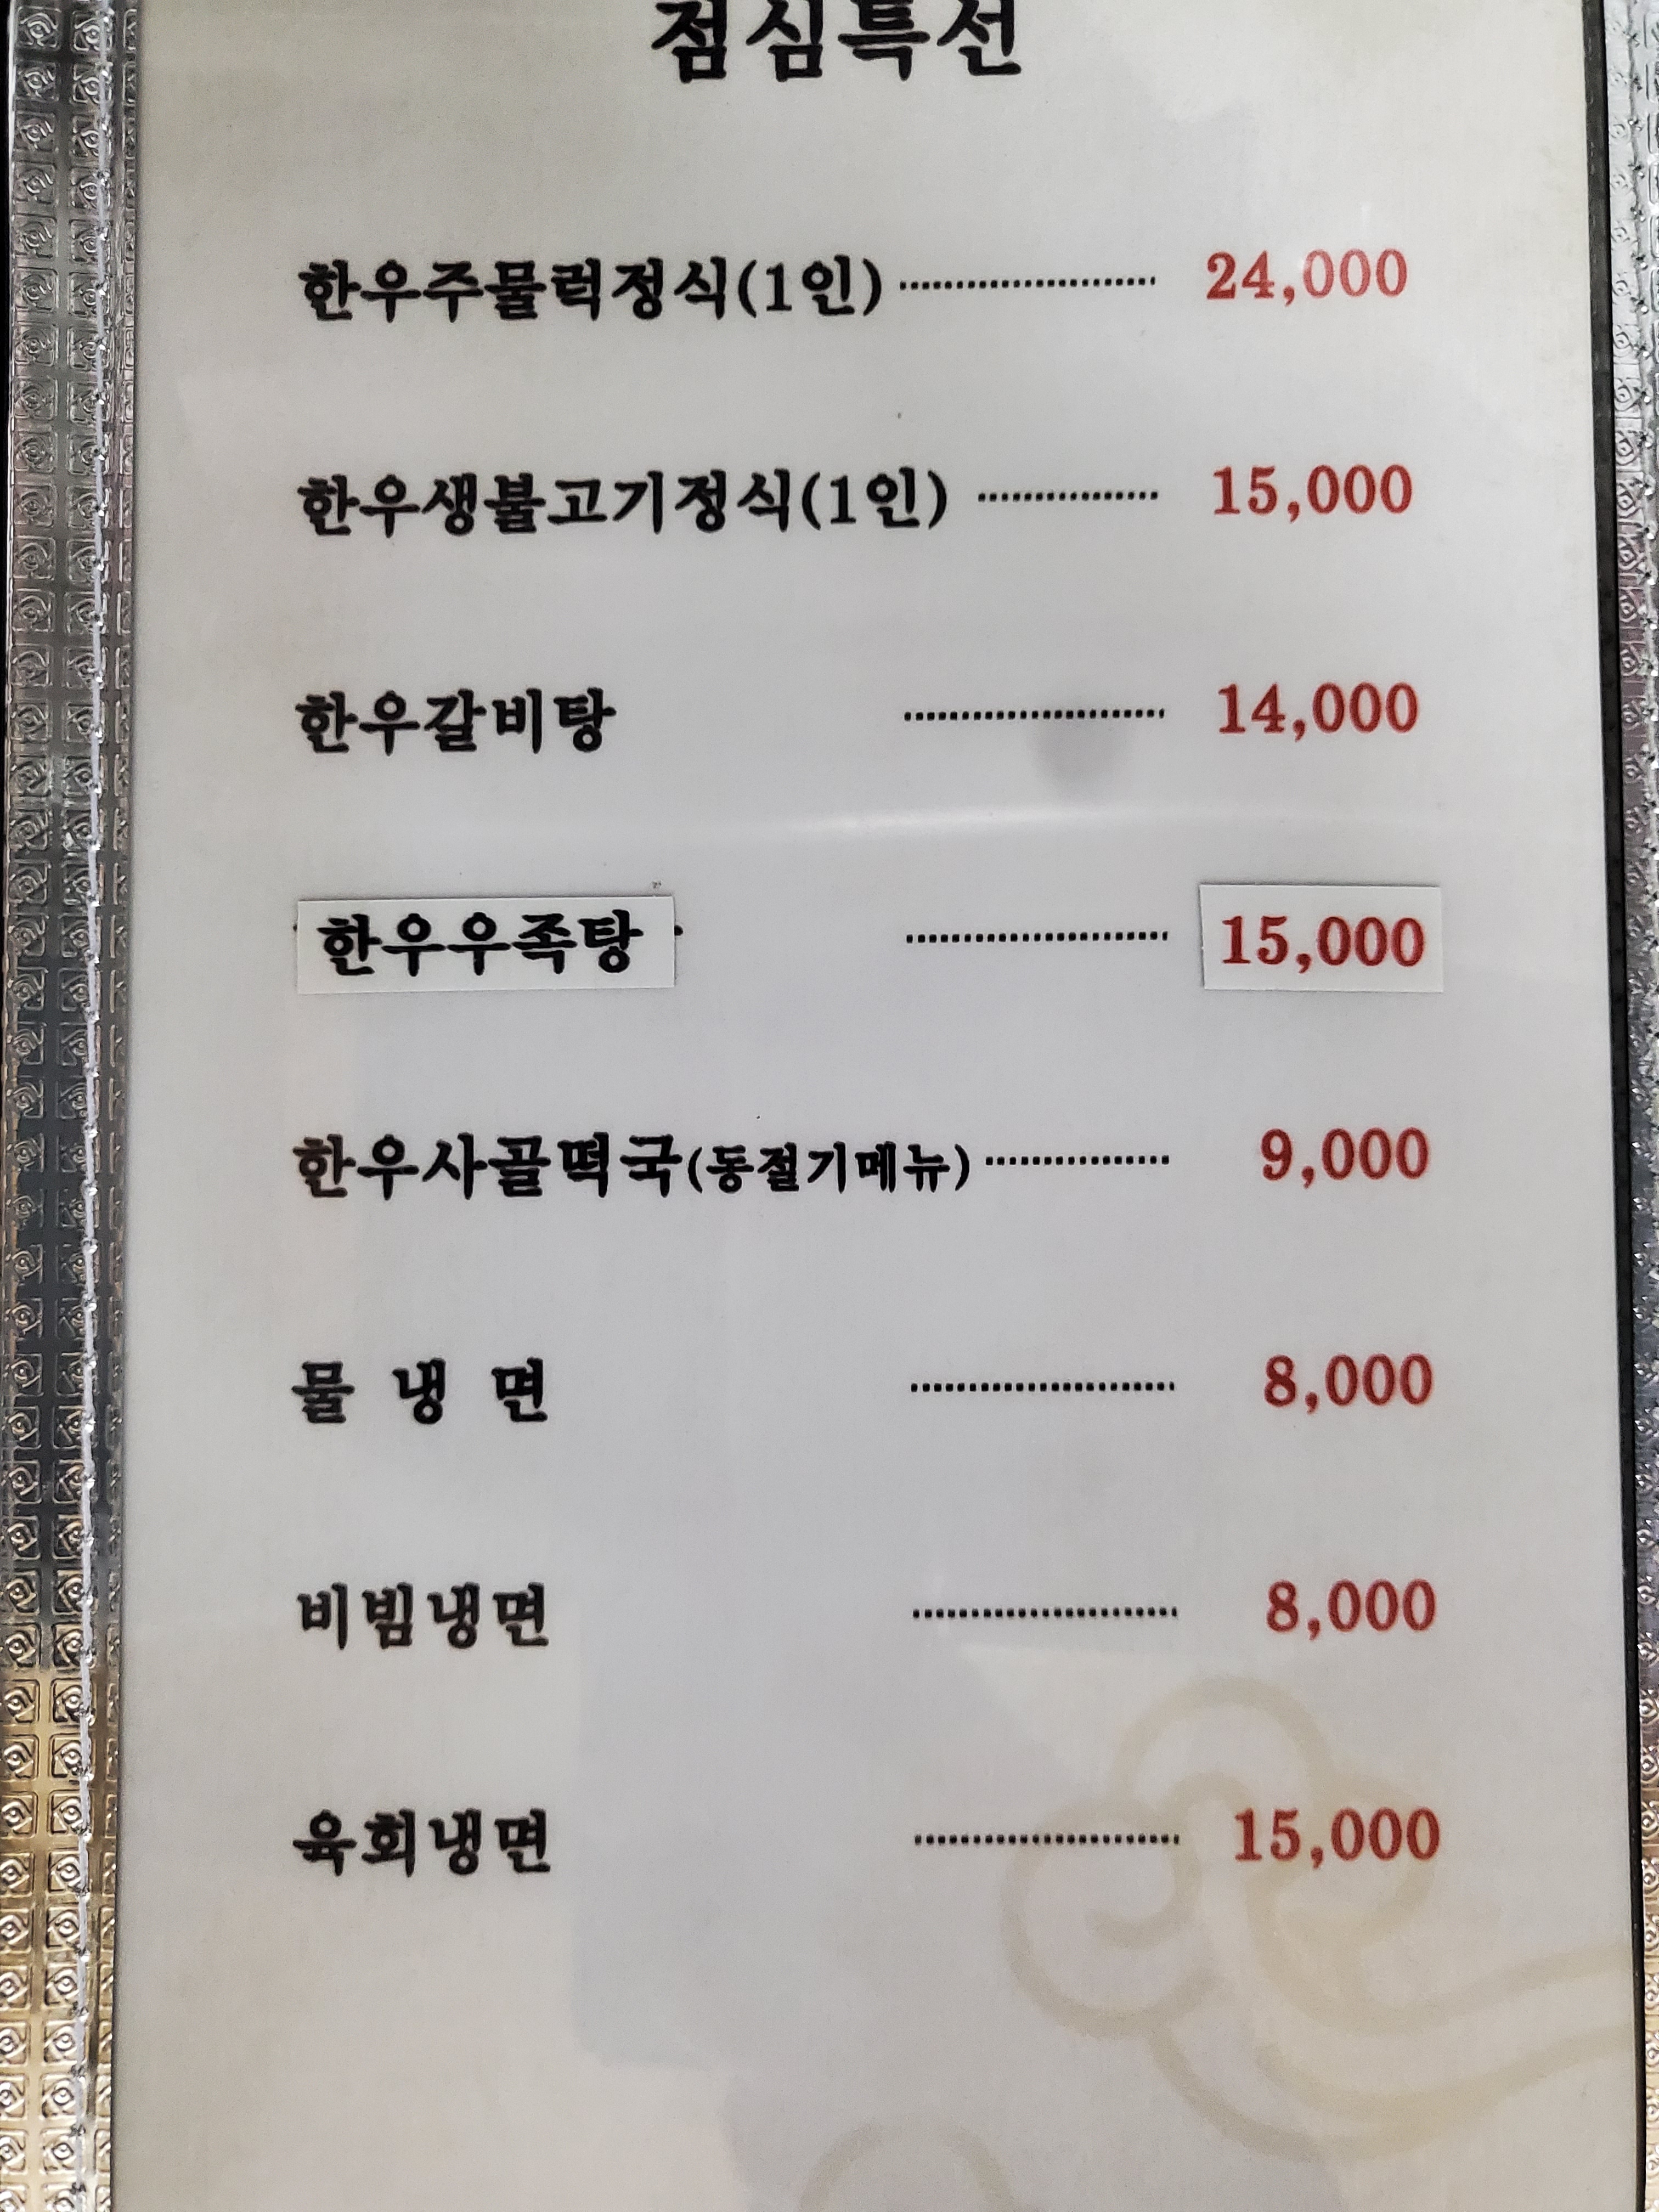 점심특선
한우주물럭정식(1인) 24,000
한우생불고기정식(1인) 15,000
한우갈비탕 14,000
한우우족탕 15,000
한우사골떡국(동절기메뉴) 9,000
물 냉 면 8,000
비빔냉면 8,000
육회냉면 15,000